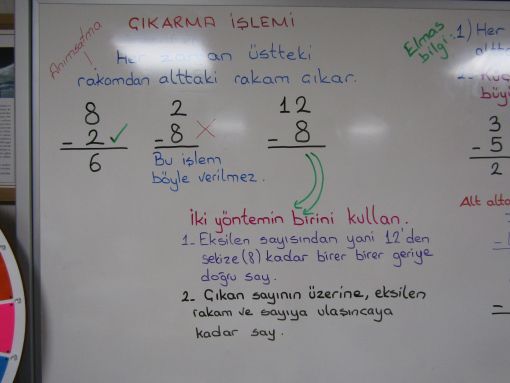 ÇIKARMA İŞLEMİ
Anımsatma
!
Her zaman üstteki
rakamdan alttaki rakam çıkar.
8
- 2 ✓
6
2
- 8 ✗
Bu işlem
böyle verilmez.
12
- 8
İki yöntemin birini kullan.
1- Eksilen sayısından yani 12'den
sekize (8) kadar birer birer geriye
doğru say.
2- Çıkan sayının üzerine, eksilen
rakam ve sayıya ulaşıncaya
kadar say.
Elmas
bilgi:
1) Her
2-
büyü
3
- 5
2
Alt alta